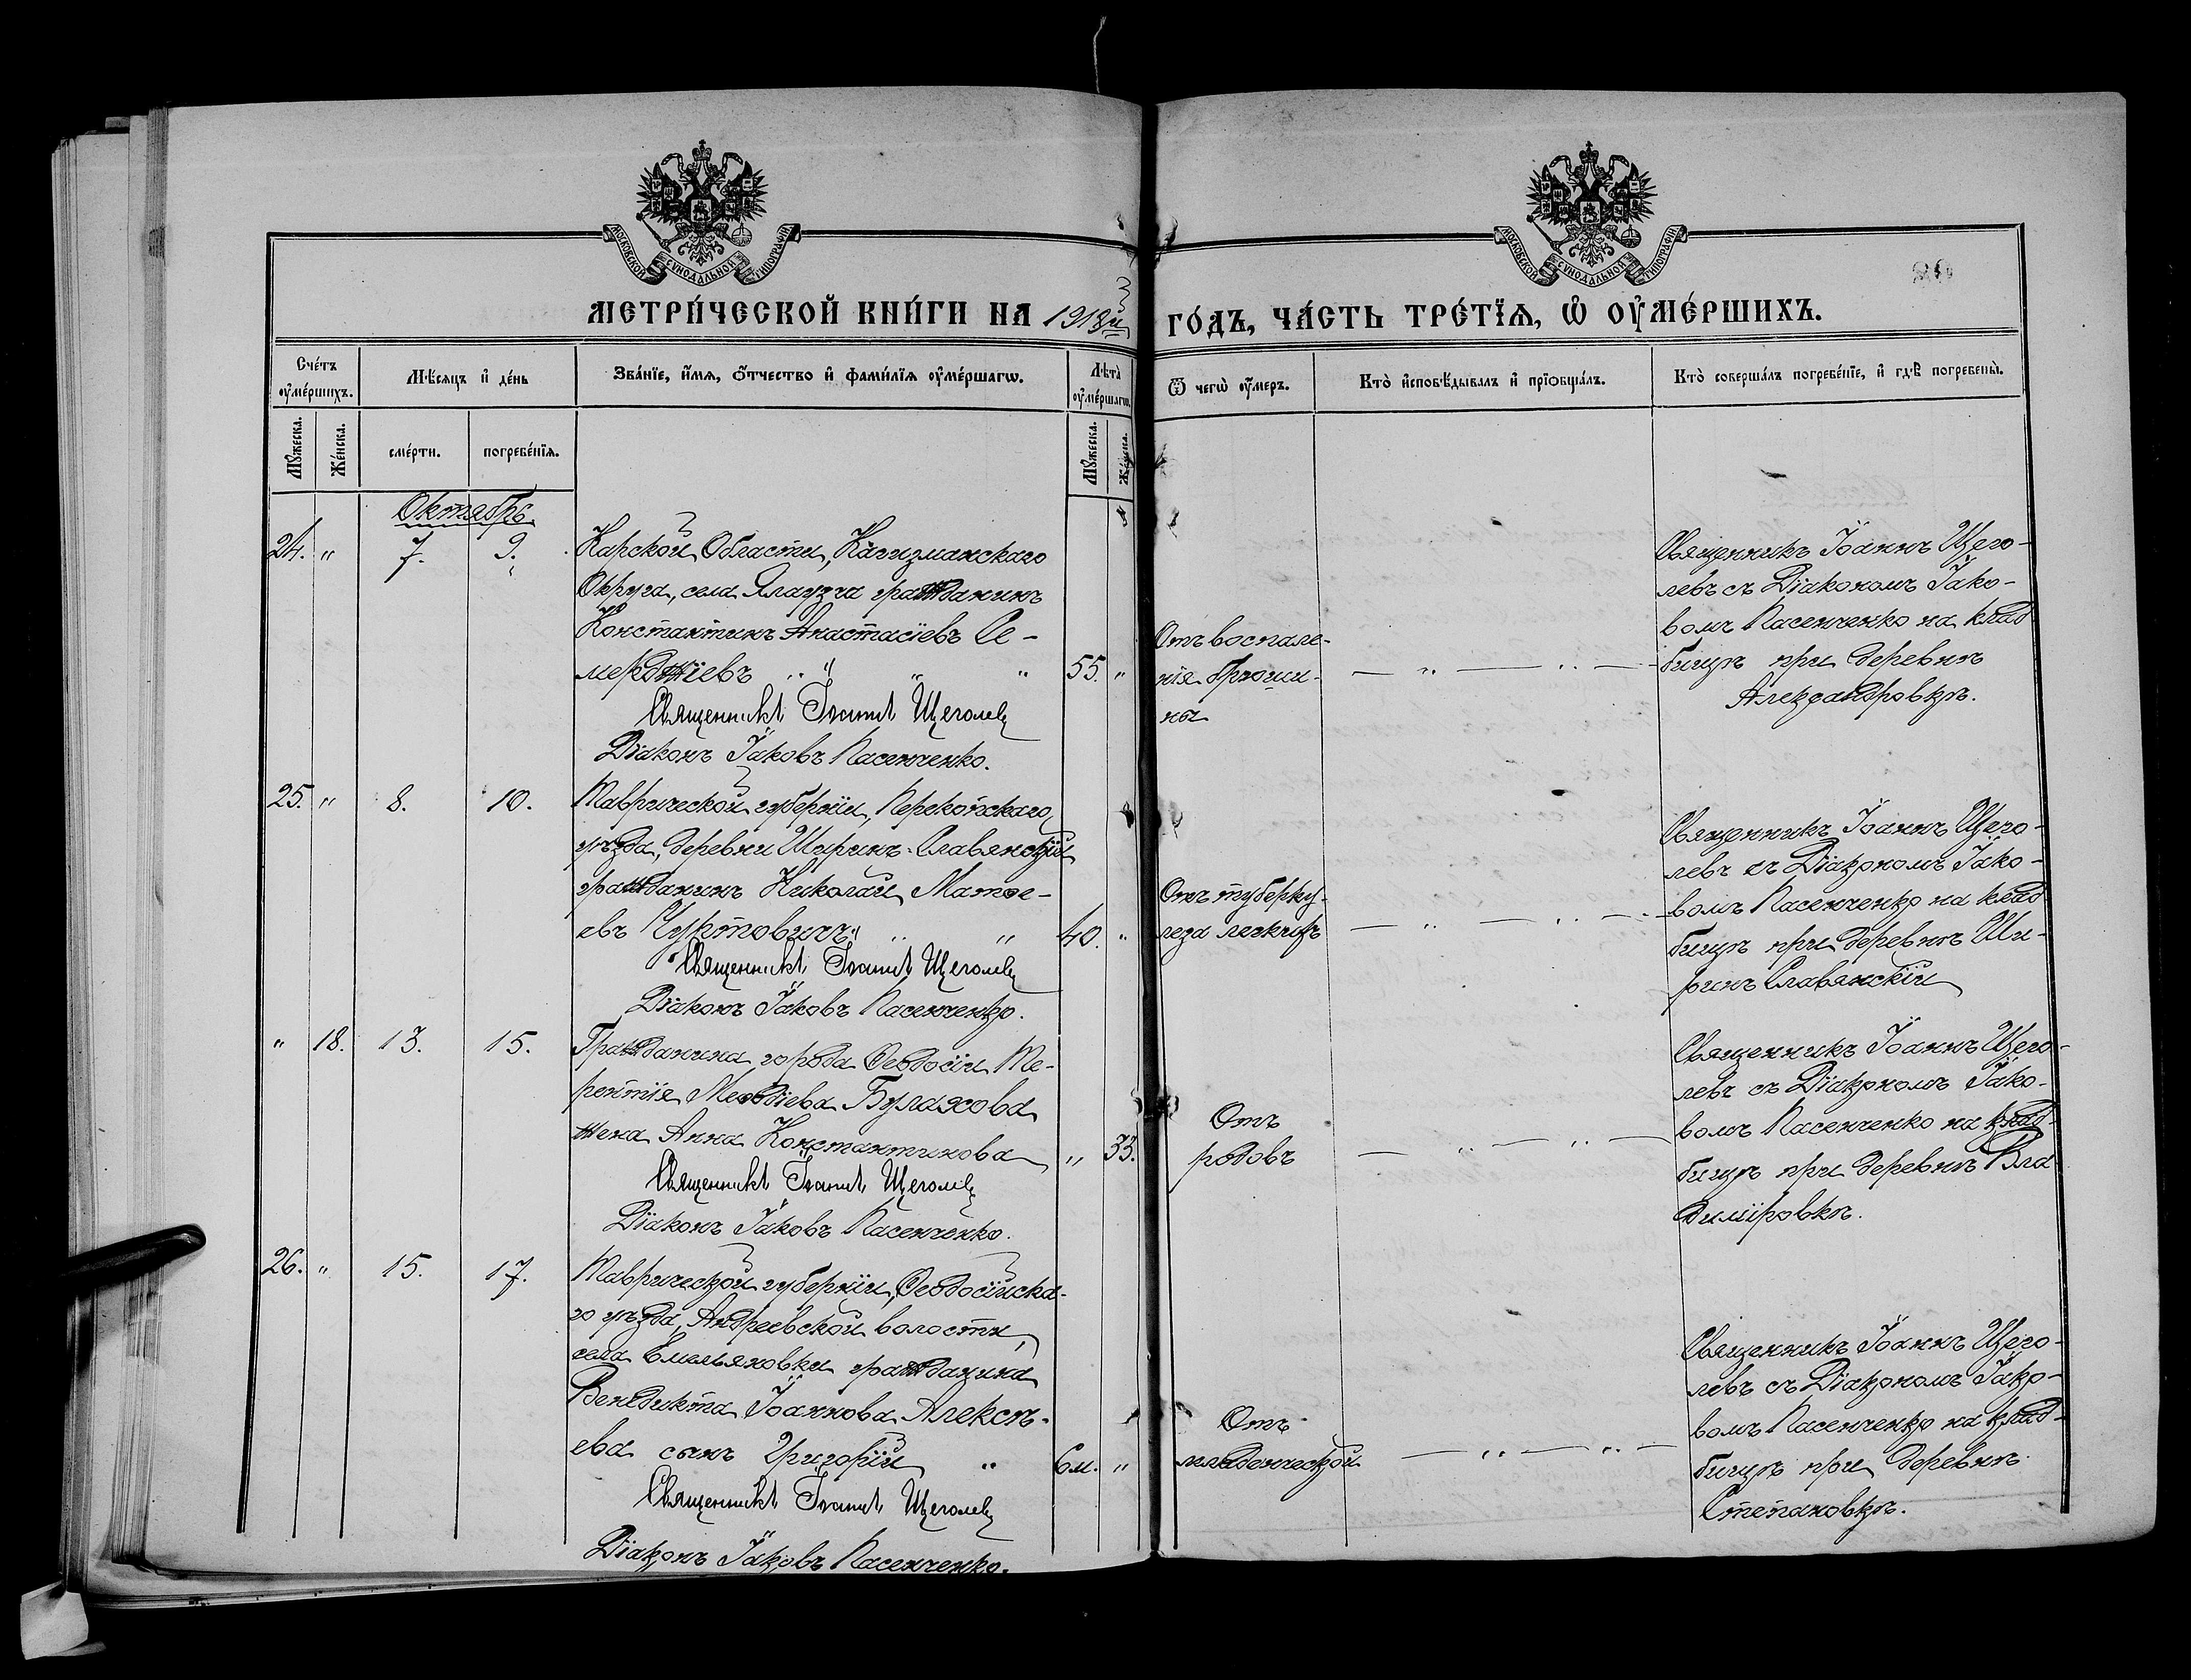 МОСКОВСКОЙ СѴНОДАЛЬНОЙ ТИПОГРАФІИ
МОСКОВСКОЙ СѴНОДАЛЬНОЙ ТИПОГРАФІИ
МЕТРИ́ЧЕСКОЙ КНИ́ГИ НА 1918й ГО́ДЪ, ЧА́СТЬ ТРЕ́ТЇѦ, Ѡ ОУ҆МЕ́РШИХЪ.
Сче́тъ оу҆ме́ршихъ.
Мѣ́сяцъ и҆ де́нь
Зва́нїе, и҆́мѧ, ѻ҆́тчество и҆ фами́лїѧ оу҆ме́ршагѡ.
Лѣ́та оу҆ме́ршагѡ.
Ѿ чегѡ̀ оу҆́меръ.
Кто̀ и҆сповѣ́дывалъ и҆ прїѡбща́лъ.
Кто̀ соверша́лъ погребе́нїе, и҆ гдѣ̀ погребены̀.
Мꙋ́жеска.
Же́нска.
сме́рти.
погребе́нїѧ.
Мꙋ́жеска.
Же́нска.
Октябрь
24. " 7. 9. Карской Области, Кагизманскаго
Округа, села Ялаузча гражданинъ
Константинъ Анастасіевъ Де-
мерджіевъ " " " 55. "
Священникъ Іоаннъ Щеголевъ
Діаконъ Іаковъ Пасенченко.
Отъ воспале-
нія брюши-
ны
Священникъ Іоаннъ Щего-
левъ съ Діакономъ Іако-
вомъ Пасенченко на клад
бищѣ при деревнѣ
Александровкѣ.
25. " 8. 10. Таврической губерніи, Перекопскаго
уѣзда, деревни Ширинъ-Славянскій
гражданинъ Николай Матѳе-
евъ Чуртовичъ " " " 40. "
Священникъ Іоаннъ Щеголевъ
Діаконъ Іаковъ Пасенченко.
Отъ туберку-
леза легкихъ
Священникъ Іоаннъ Щего-
левъ съ Діакономъ Іако-
вомъ Пасенченко на клад
бищѣ при деревнѣ Ши-
ринъ Славянскій
" 18. 13. 15. Гражданина города Ѳеодосіи Те-
рентія Меѳодіева Булахова
жена Анна Константинова " 33.
Священникъ Іоаннъ Щеголевъ
Діаконъ Іаковъ Пасенченко.
Отъ
родовъ
Священникъ Іоаннъ Щего-
левъ съ Діакономъ Іако-
вомъ Пасенченко на клад-
бищѣ при деревнѣ Вла
диміровкѣ.
26. " 15. 17. Таврической губерніи, Ѳеодосійска-
го уѣзда, Андреевской волости,
села Емельяновки гражданина
Венедикта Іоаннова Алексѣ-
ева сынъ Григорій " 6м. "
Священникъ Іоаннъ Щеголевъ
Діаконъ Іаковъ Пасенченко.
Отъ
младенческой
Священникъ Іоаннъ Щего-
левъ съ Діакономъ Іако-
вомъ Пасенченко на клад-
бищѣ при деревнѣ
Степановкѣ.